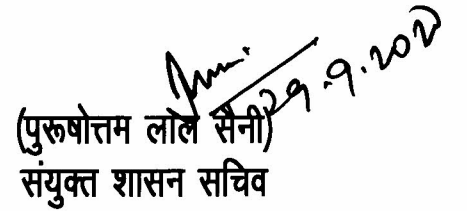 29.9.2020
(पुरूषोत्तम लाल सैनी)
संयुक्त शासन सचिव